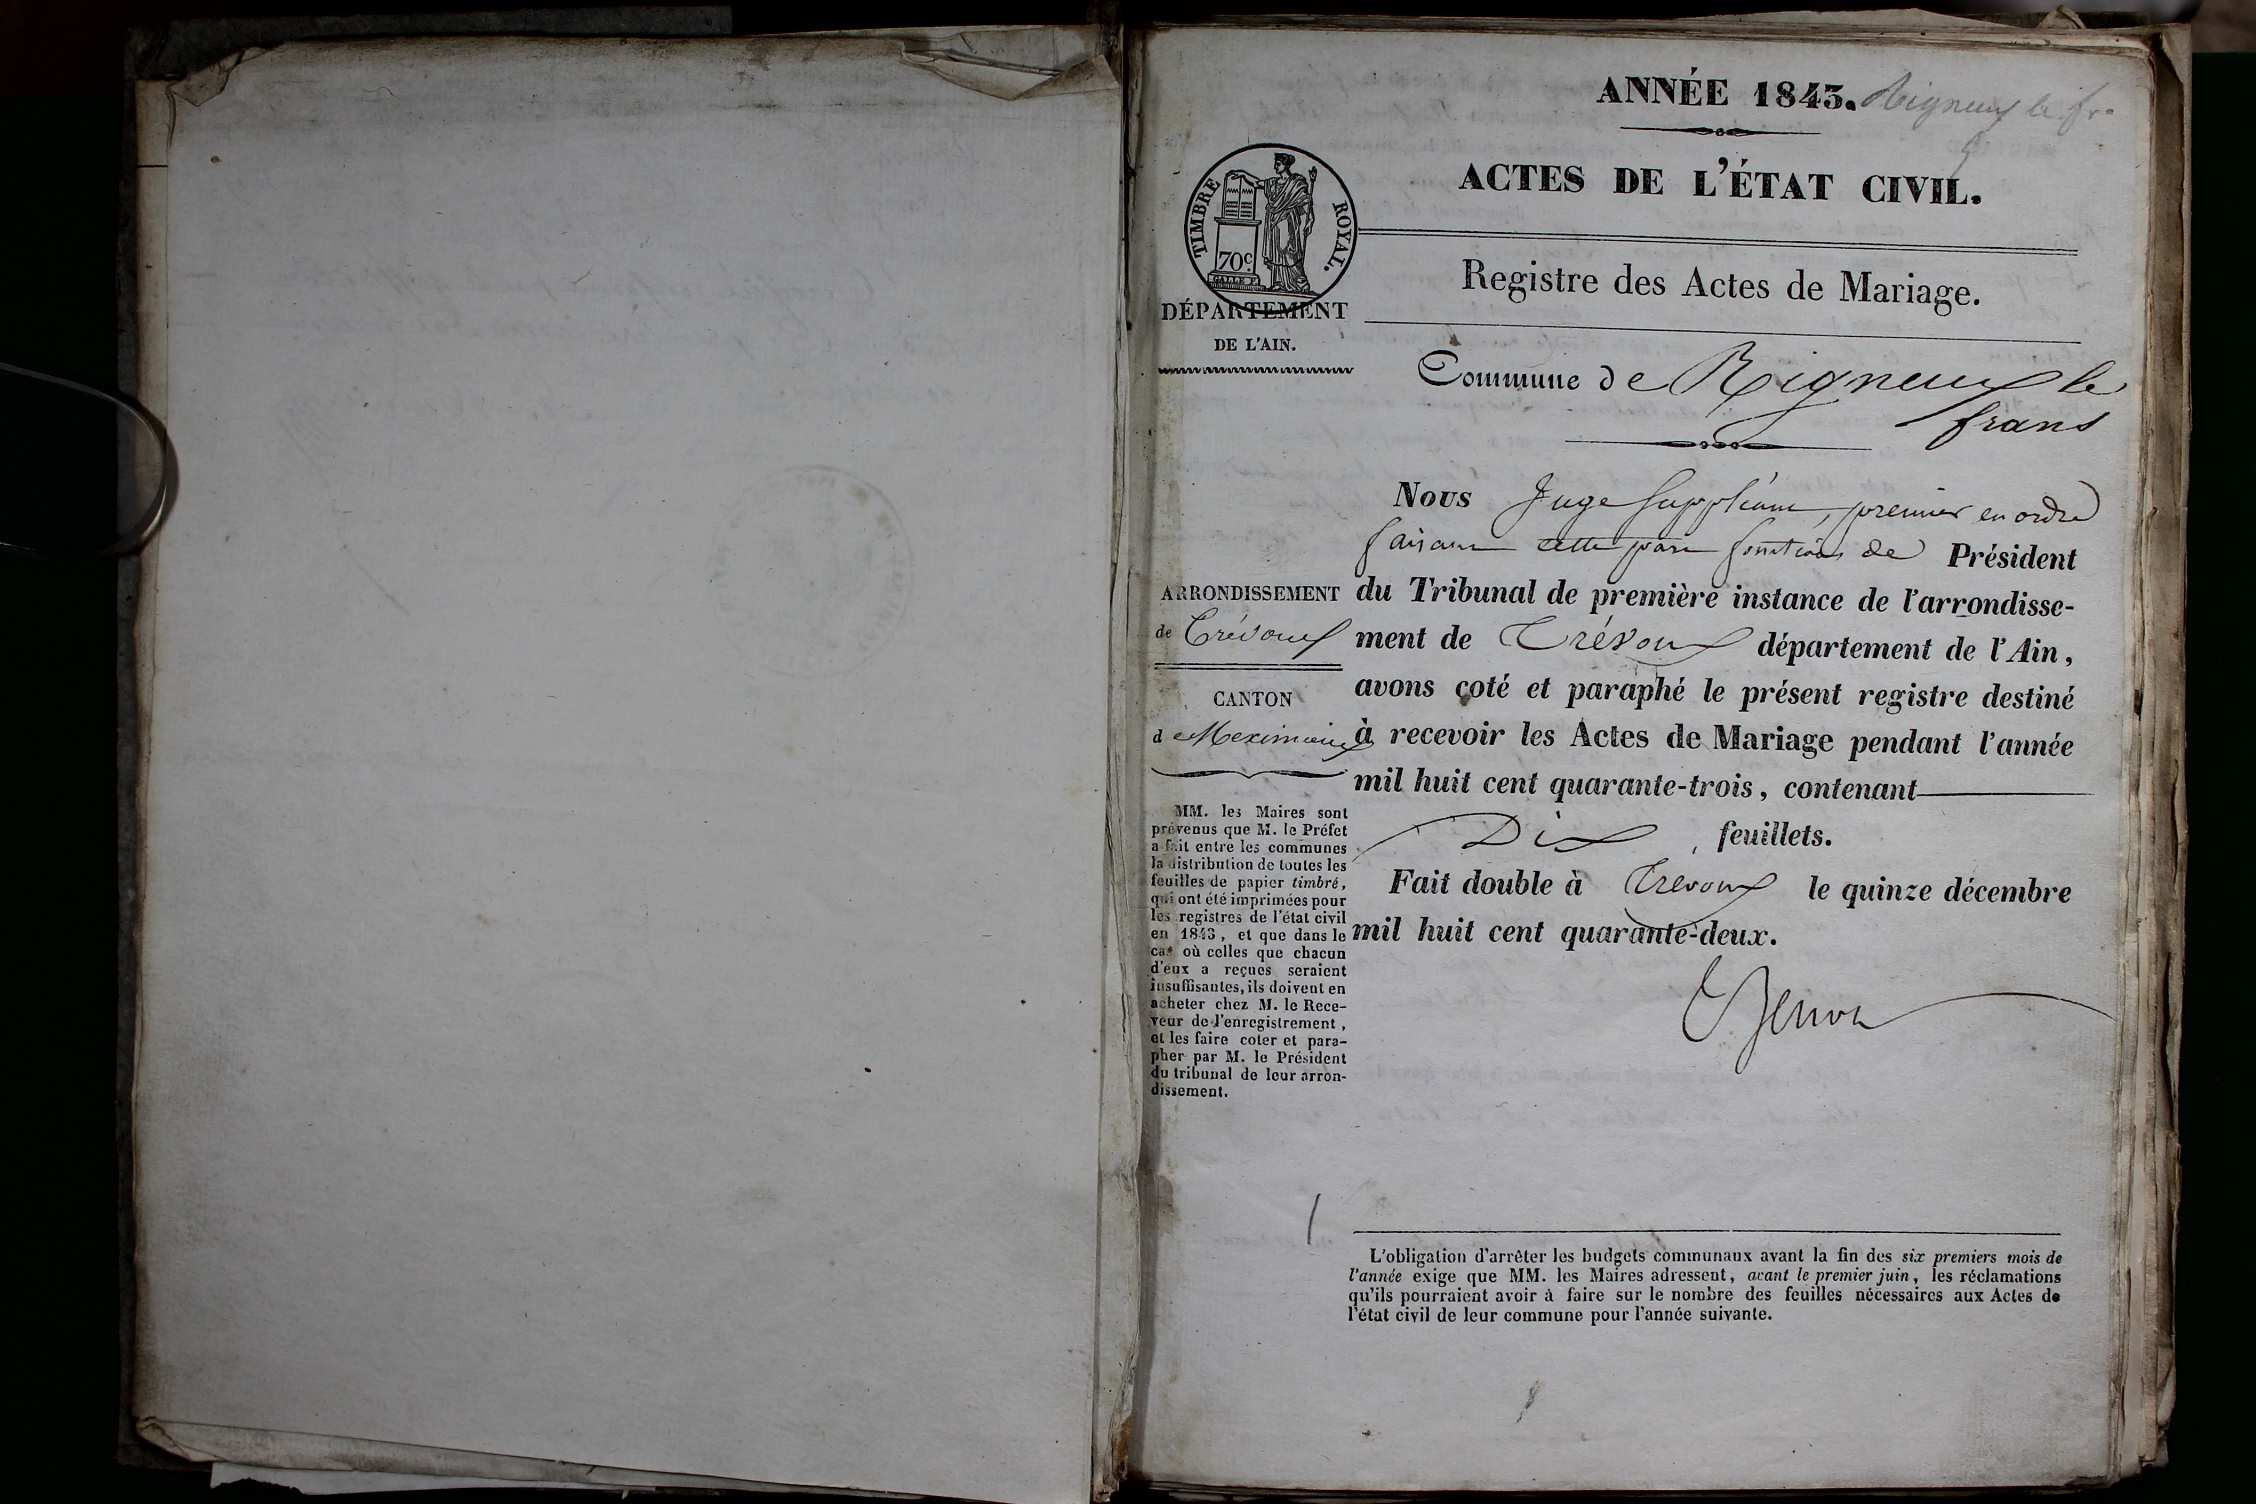 ANNÉE 1843. Rigneux le fr.
ACTES DE L'ÉTAT CIVIL.
TIMBRE ROYAL.
70c.
Registre des Actes de Mariage.
DÉPARTEMENT
DE L'AIN.
Commune de Rigneux le
frans
Nous Juge Suppléant, premier en ordre
faisant cette part fonctions de Président
du Tribunal de première instance de l'arrondisse-
ment de Trévoux département de l'Ain,
avons coté et paraphé le présent registre destiné
à recevoir les Actes de Mariage pendant l'année
mil huit cent quarante-trois, contenant
Dix feuillets.
Fait double à Trevoux le quinze décembre
mil huit cent quarante-deux.
ARRONDISSEMENT
de Trévoux
CANTON
de Meximieux
MM. les Maires sont
prévenus que M. le Préfet
a fait entre les communes
la distribution de toutes les
feuilles de papier timbré,
qui ont été imprimées pour
les registres de l'état civil
en 1843, et que dans le
cas où celles que chacun
d'eux a reçues seraient
insuffisantes, ils doivent en
acheter chez M. le Rece-
veur de l'enregistrement,
et les faire coter et para-
pher par M. le Président
du tribunal de leur arron-
dissement.
L'obligation d'arrêter les budgets communaux avant la fin des six premiers mois de
l'année exige que MM. les Maires adressent, avant le premier juin, les réclamations
qu'ils pourraient avoir à faire sur le nombre des feuilles nécessaires aux Actes de
l'état civil de leur commune pour l'année suivante.